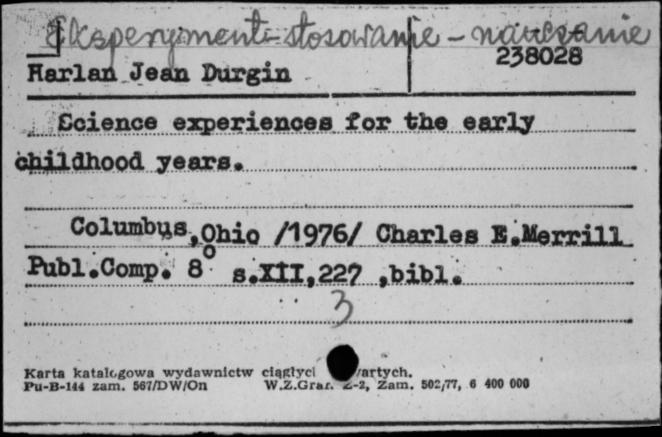 Eksperyment-stosowanie - nauczanie
238028
Harlan Jean Durgin
Science experiences for the early
childhood years.
Columbus,Ohio /1976/ Charles E.Merrill
Publ.Comp. 8° s.XII,227 ,bibl.
3
Karta katalogowa wydawnictw ciągłych
Pu-B-144 zam. 567/DW/On W.Z.Graf. Z-2, Zam. 502/77, 6 400 000